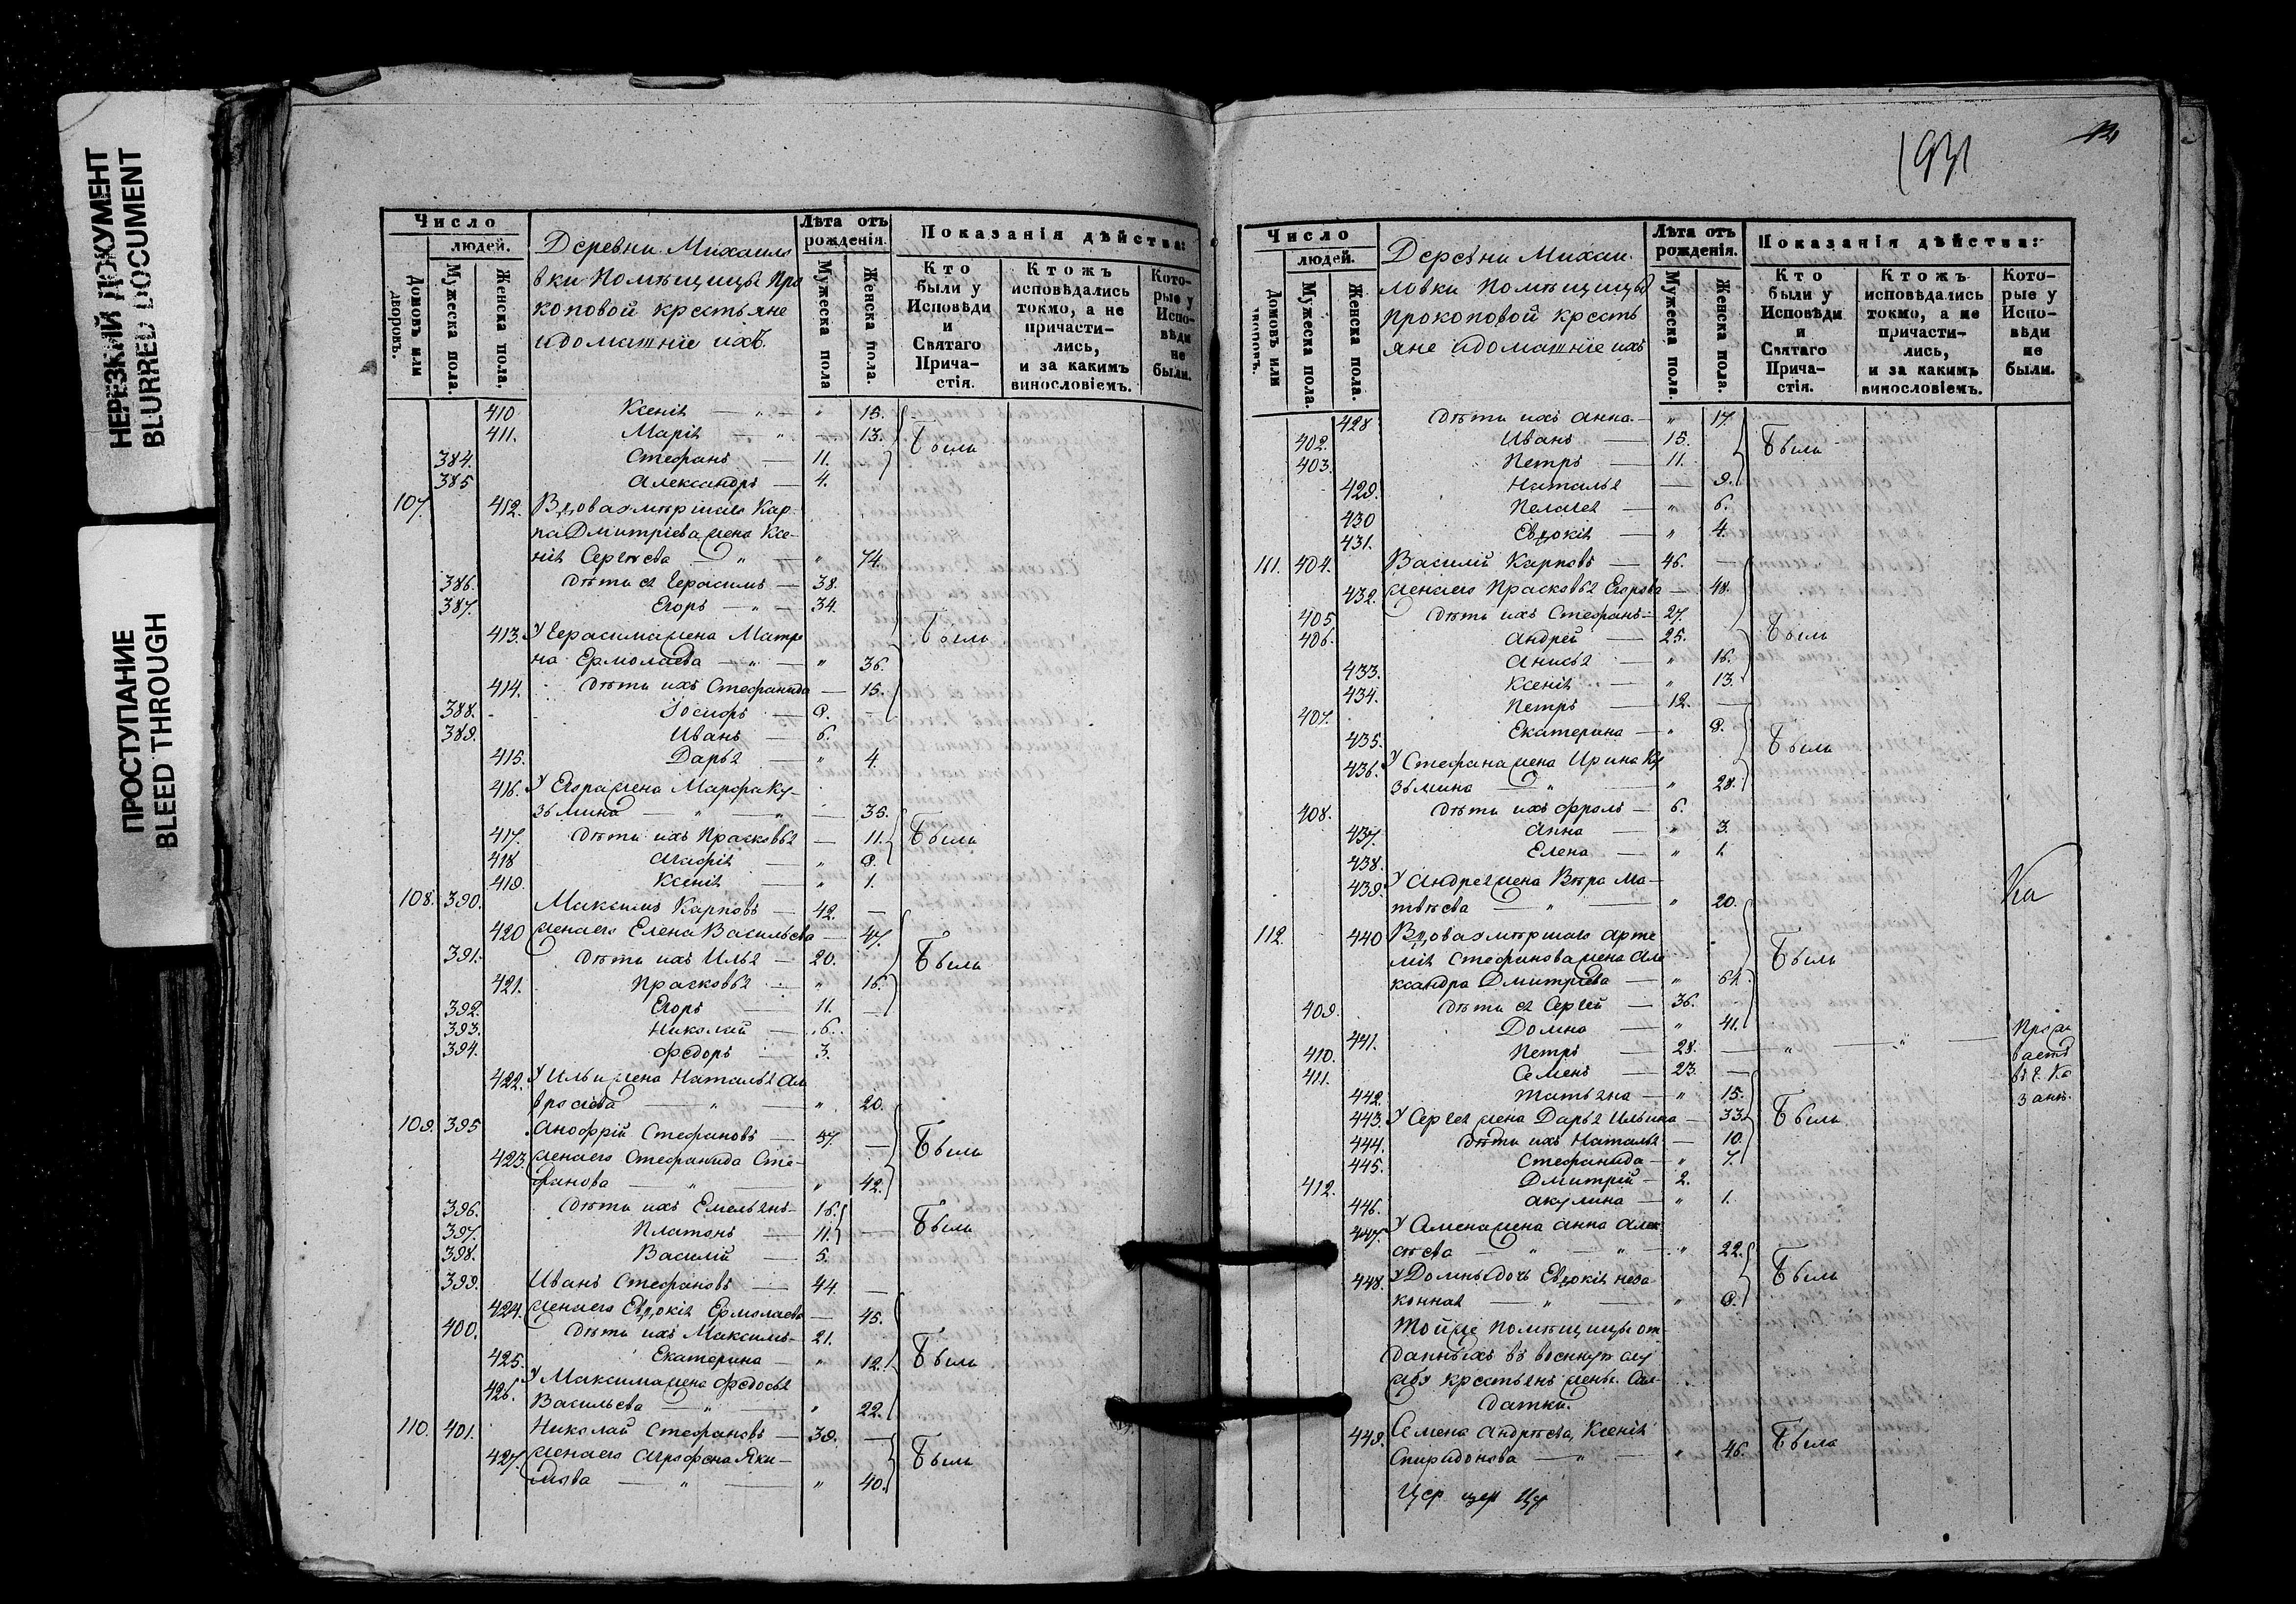 НЕРЕЗКИЙ ДОКУМЕНТ
BLURRED DOCUMENT
ПРОСТУПАНИЕ
BLEED THROUGH
Число
людей.
Домовъ или дворовъ.
Мужеска пола.
Женска пола.
Деревни Михайло
вки Помѣщицы Про
коповой крестьяне
и домашніе ихъ
Лѣта отъ рожденія.
Мужеска пола
Женска пола.
Показанія дѣйства:
Кто были у Исповѣди и Святаго Прича-стія.
Ктожъ исповѣдались токмо, а не причасти-лись, и за какимъ винословіемъ.
Кото-рые у Испо-вѣди не были.
410 Ксенія — „ — „ 15.
411. Марія „ — 13. Были
384. Стефанъ — 11.
385 Александръ — 4.
107. 412. Вдова умершаго Кар-
па Дмитріева жена Ксе-
нія Сергѣева — „ — „ 74.
386. Дѣти ея Герасимъ — 38.
387. Егоръ — „ — 34.
413. У Герасима жена Матре Были
на Ермолаева — „ — „ 36.
414. Дѣти ихъ Стефанида — 15.
388. Іосифъ — 9. —
389. Иванъ — 6.
415. Дарья — „ 4.
416. У Егора жена Марфа Ку-
зьмина — „ — „ — 35.
417. Дѣти ихъ Прасковья — 11. Были
418 Агафія — „ 9.
419. Ксенія — „ 1.
108. 390. Максимъ Карповъ — 42. —
420 жена его Елена Васильева — 47.
391. Дѣти ихъ Илья — 20. Были
421. Прасковья „ 16.
392. Егоръ — 11. —
393. Николай — 6.
394. Федоръ — 3.
422. У Ильи жена Наталья Ам
вросіева — „ — „ 20.
109. 395 Анофрій Стефановъ — 37. — Были
423. жена его Стефанида Сте-
фанова — „ — „ 42.
396. Дѣти ихъ Емельянъ — 16.
397. Платонъ — 11. — Были
398. Василій — 5.
399. Иванъ Стефановъ — 44. —
424. жена его Евдокія Ермолаева — 45.
400. Дѣти ихъ Максимъ — 21.
425. Екатерина — „ 12. Были
426. У Максима жена Федосья
Васильева — „ — „ 22.
110. 401. Николай Стефановъ — 39. —
427. жена его Агрофена Яки- Были
мова — „ — „ 40.
193
Число
людей.
Домовъ или дворовъ.
Мужеска пола.
Женска пола.
Деревни Михай-
ловки Помѣщицы
Прокоповой кресть
яне и домашніе ихъ
Лѣта отъ рожденія.
Мужеска пола.
Женска пола.
Показанія дѣйства:
Кто были у Исповѣди и Святаго Прича-стія.
Ктожъ исповѣдались токмо, а не причасти-лись, и за какимъ винословіемъ.
Кото-рые у Испо-вѣди не были.
428 Дѣти ихъ Анна — „ 17.
402. Иванъ — 15. Были
403. Петръ — 11.
429. Наталья — 9.
430 Пелагея — „ 6.
431. Евдокія — „ 4.
111. 404. Василій Карповъ — 46. —
432. жена его Прасковья Егорова — 48.
405 Дѣти ихъ Стефанъ — 27.
406. Андрей — 25. Были
433. Анисья — „ 16.
434. Ксенія — „ 13.
407. Петръ — 12. —
435. Екатерина — „ 9. Были
436. У Стефана жена Ирина Ку
зьмина — „ — „ 28.
408. Дѣти ихъ Фролъ — 6.
437. Анна — „ 3.
438. Елена — „ 1.
439. У Андрея жена Вѣра Ма-
твѣева — „ — „ 20.
Ка
112. 440 Вдова умершаго Арте
мія Стефанова жена Але Были
ксандра Дмитріева — „ 64.
409. Дѣти ея Сергей — 36. —
441. Домна — „ 41.
410. Петръ — 28. — „ — „ —
411. Семенъ — 23. —
Прожи
ваетъ
въ г. Ка
зань.
442. Татьяна — „ 15.
443. У Сергея жена Дарья Ильина — 33. Были
444. Дѣти ихъ Наталья — 10.
445. Стефанида — „ 7.
412. Дмитрій — 2.
446. Акулина — „ 1.
447. У Семена жена Анна Алек
сѣева — „ — „ — „ 22.
448. У Домны дочь Евдокія неза Были
конная — „ — „ 9.
Той же Помѣщицы от-
данныхъ въ военную слу
жбу крестьянъ жены Сол-
датки.
449. Семена Андрѣева, Ксенія Была
Спиридонова — „ — „ 46.